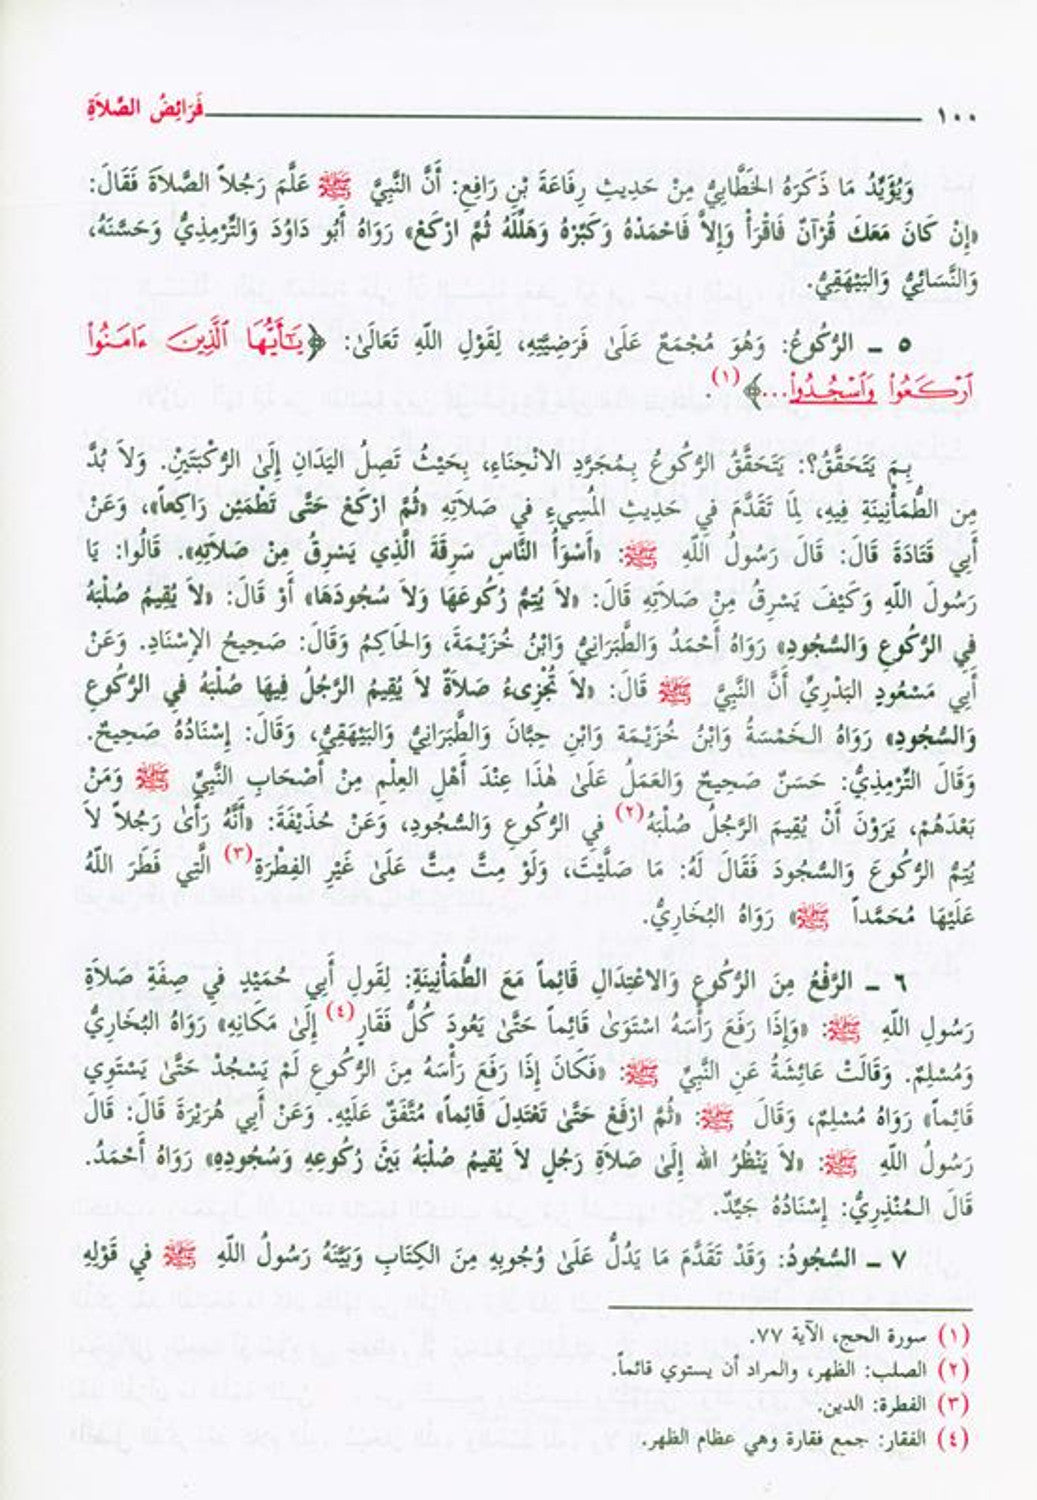 ١٠٠ فَرَائِضُ الصَّلاَةِ
وَيُؤَيِّدُ مَا ذَكَرَهُ الخَطَّابِيُّ مِنْ حَدِيثِ رِفَاعَةَ بْنِ رَافِعٍ: أَنَّ النَّبِيَّ ﷺ عَلَّمَ رَجُلاً الصَّلاَةَ فَقَالَ:
«إِنْ كَانَ مَعَكَ قُرْآنٌ فَاقْرَأْ وَإِلاَّ فَاحْمَدْهُ وَكَبِّرْهُ وَهَلِّلْهُ ثُمَّ ارْكَعْ» رَوَاهُ أَبُو دَاوُدَ وَالتِّرْمِذِيُّ وَحَسَّنَهُ،
وَالنَّسَائِيُّ وَالبَيْهَقِيُّ.
٥ ـ الرُّكُوعُ: وَهُوَ مُجْمَعٌ عَلَىٰ فَرَضِيَّتِهِ، لِقَوْلِ اللّهِ تَعَالَىٰ: ﴿يَٰٓأَيُّهَا ٱلَّذِينَ ءَامَنُوا۟
ٱرْكَعُوا۟ وَٱسْجُدُوا۟...﴾(١).
بِمَ يَتَحَقَّقُ؟: يَتَحَقَّقُ الرُّكُوعُ بِمُجَرَّدِ الانْحِنَاءِ، بِحَيْثُ تَصِلُ اليَدَانِ إِلَىٰ الرُّكْبَتَيْنِ. وَلاَ بُدَّ
مِن الطُّمَأْنِينَةِ فِيهِ، لِمَا تَقَدَّمَ فِي حَدِيثِ المُسِيءِ فِي صَلاَتِهِ «ثُمَّ ارْكَعْ حَتَّى تَطْمَئِن رَاكِعاً»، وَعَنْ
أَبِي قَتَادَةَ قَالَ: قَالَ رَسُولُ اللّهِ ﷺ: «أَسْوَأُ النَّاسِ سَرِقَةً الَّذِي يَسْرِقُ مِنْ صَلاَتِهِ». قَالُوا: يَا
رَسُولَ اللّهِ وَكَيْفَ يَسْرِقُ مِنْ صَلاَتِهِ قَالَ: «لاَ يُتِمُّ رُكُوعَهَا وَلاَ سُجُودَهَا» أَوْ قَالَ: «لاَ يُقِيمُ صُلْبَهُ
فِي الرُّكُوعِ وَالسُّجُودِ» رَوَاهُ أَحْمَدُ وَالطَّبَرَانِيُّ وَابْنُ خُزَيْمَةَ، وَالحَاكِمُ وَقَالَ: صَحِيحُ الإِسْنَادِ. وَعَنْ
أَبِي مَسْعُودٍ البَدْرِيِّ أَنَّ النَّبِيَّ ﷺ قَالَ: «لاَ تُجْزِىءُ صَلاَةٌ لاَ يُقِيمُ الرَّجُلُ فِيهَا صُلْبَهُ فِي الرُّكُوعِ
وَالسُّجُودِ» رَوَاهُ الخَمْسَةُ وَابْنُ خُزَيْمَة وَابْنِ حِبَّانَ وَالطَّبَرَانِيُّ وَالبَيْهَقِيُّ، وَقَالَ: إِسْنَادُهُ صَحِيحٌ.
وَقَالَ التِّرْمِذِيُّ: حَسَنٌ صَحِيحٌ وَالعَمَلُ عَلَىٰ هٰذَا عِنْدَ أَهْلِ العِلْمِ مِنْ أَصْحَابِ النَّبِيِّ ﷺ وَمَنْ
بَعْدَهُمْ، يَرَوْنَ أَنْ يُقِيمَ الرَّجُلُ صُلْبَهُ(٢) فِي الرُّكُوعِ وَالسُّجُودِ، وَعَنْ حُذَيْفَةَ: «أَنَّهُ رَأَىٰ رَجُلاً لاَ
يُتِمُّ الرُّكُوعَ وَالسُّجُودَ فَقَالَ لَهُ: مَا صَلَّيْتَ، وَلَوْ مِتَّ مِتَّ عَلَىٰ غَيْرِ الفِطْرَةِ(٣) الَّتِي فَطَرَ اللّهُ
عَلَيْهَا مُحَمَّداً ﷺ» رَوَاهُ البُخَارِيُّ.
٦ ـ الرَّفْعُ مِنَ الرُّكُوعِ وَالاعْتِدَالِ قَائِماً مَعَ الطُّمَأْنِينَةِ: لِقَوْلِ أَبِي حُمَيْدٍ فِي صِفَةِ صَلاَةِ
رَسُولِ اللّهِ ﷺ: «وَإِذَا رَفَعَ رَأْسَهُ اسْتَوَىٰ قَائِماً حَتَّىٰ يَعُودَ كُلُّ فَقَارٍ(٤) إِلَىٰ مَكَانِهِ» رَوَاهُ البُخَارِيُّ
وَمُسْلِمٌ. وَقَالَتْ عَائِشَةُ عَنِ النَّبِيِّ ﷺ: «فَكَانَ إِذَا رَفَعَ رَأْسَهُ مِنَ الرُّكُوعِ لَمْ يَسْجُدْ حَتَّىٰ يَسْتَوِي
قَائِماً» رَوَاهُ مُسْلِمٌ، وَقَالَ ﷺ: «ثُمَّ ارْفَعْ حَتَّىٰ تَعْتَدِلَ قَائِماً» مُتَّفَقٌ عَلَيْهِ. وَعَنْ أَبِي هُرَيْرَةَ قَالَ: قَالَ
رَسُولُ اللّهِ ﷺ: «لاَ يَنْظُرُ الله إِلَى صَلاَةِ رَجُلٍ لاَ يُقيمُ صُلْبَهُ بَيْنَ رُكُوعِهِ وَسُجُودِهِ» رَوَاهُ أَحْمَدُ.
قَالَ المُنْذِرِيُّ: إِسْنَادُهُ جَيِّدٌ.
٧ ـ السُّجُودُ: وَقَدْ تَقَدَّمَ مَا يَدُلُّ عَلَىٰ وُجُوبِهِ مِنَ الكِتَابِ وَبَيَّنَهُ رَسُولُ اللّهِ ﷺ فِي قَوْلِهِ
(١) سورة الحج، الآية ٧٧.
(٢) الصلب: الظهر، والمراد أن يستوي قائماً.
(٣) الفطرة: الدين.
(٤) الفقار: جمع فقارة وهي عظام الظهر.